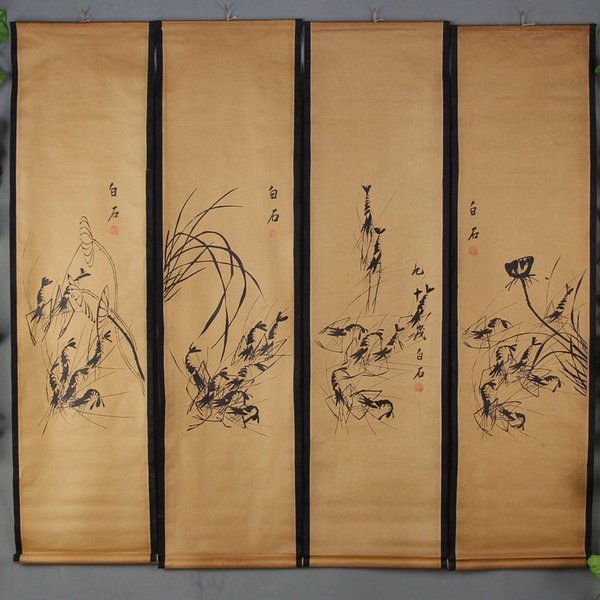 白石
白石
九十歲白石
白石